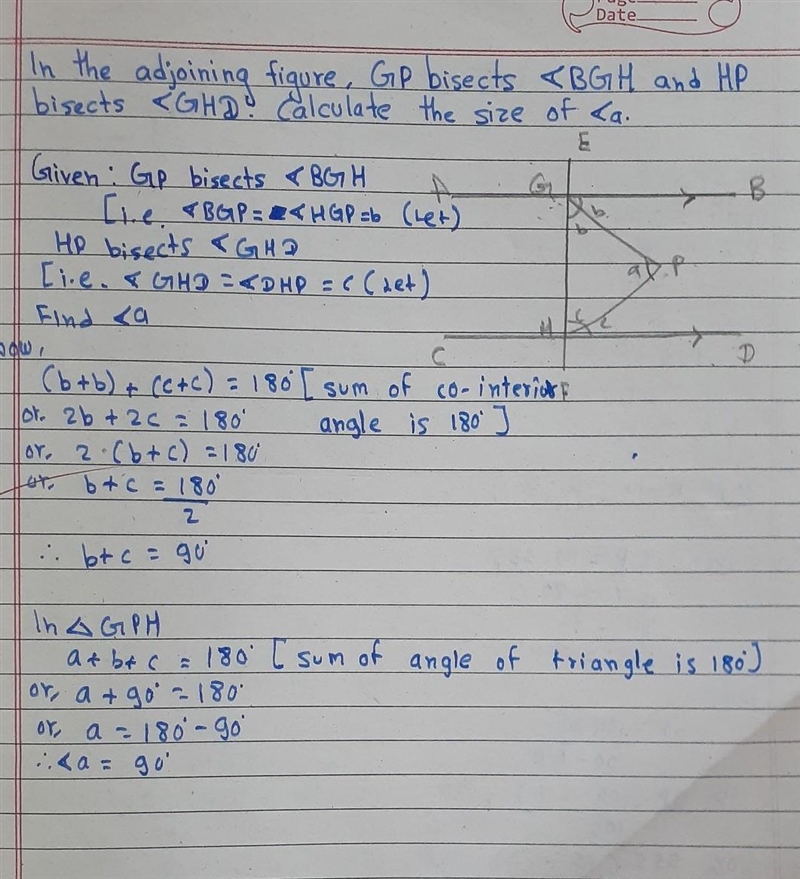 Date
In the adjoining figure, GP bisects ∢BGH and HP
bisects ∢GHD. Calculate the size of ∢a.
E
Given: GP bisects ∢BGH
A G B
[i.e. ∢BGP = ∢HGP = b (Let)
b
b
HP bisects ∢GHD
a P
[i.e. ∢GHD = ∢DHP = c (Let)
Find ∢a
H c c
C D
Now,
(b+b) + (c+c) = 180° [sum of co-interior
F
or. 2b + 2c = 180° angle is 180°]
or, 2·(b+c) = 180°
or. b+c = 180°
2
∴ b+c = 90°
In △GPH
a+b+c = 180° [sum of angle of triangle is 180°]
or, a + 90° = 180°
or, a = 180° - 90°
∴∢a = 90°